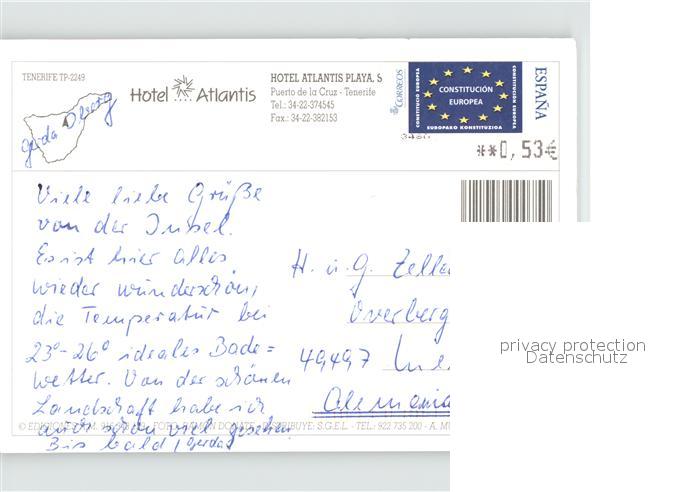 TENERIFE TP-2249
Gerda
Hotel Atlantis
HOTEL ATLANTIS PLAYA, S
Puerto de la Cruz - Tenerife
Tel.: 34-22-374545
Fax.: 34-22-382153
CORREOS
CONSTITUCIÓ EUROPEA
CONSTITUCIÓN
EUROPEA
CONSTITUCIÓN EUROPEA
EUROPAKO KONSTITUZIOA
ESPAÑA
**0,53€
Viele liebe Grüße
von der Insel.
Es ist hier alles
wieder wunderschön,
die Temperatur bei
23°-26° ideales Bade=
wetter. Von der schönen
Landschaft habe ich
auch schon viel gesehen
Bis bald, Gerda
H. u. G. Zelle
Overberg
49497
Alemania
© EDICIONES FOTO: RAMÓN DONATE DISTRIBUYE: S.G.E.L. - TEL.: 922 735 200 - A. M
privacy protection
Datenschutz